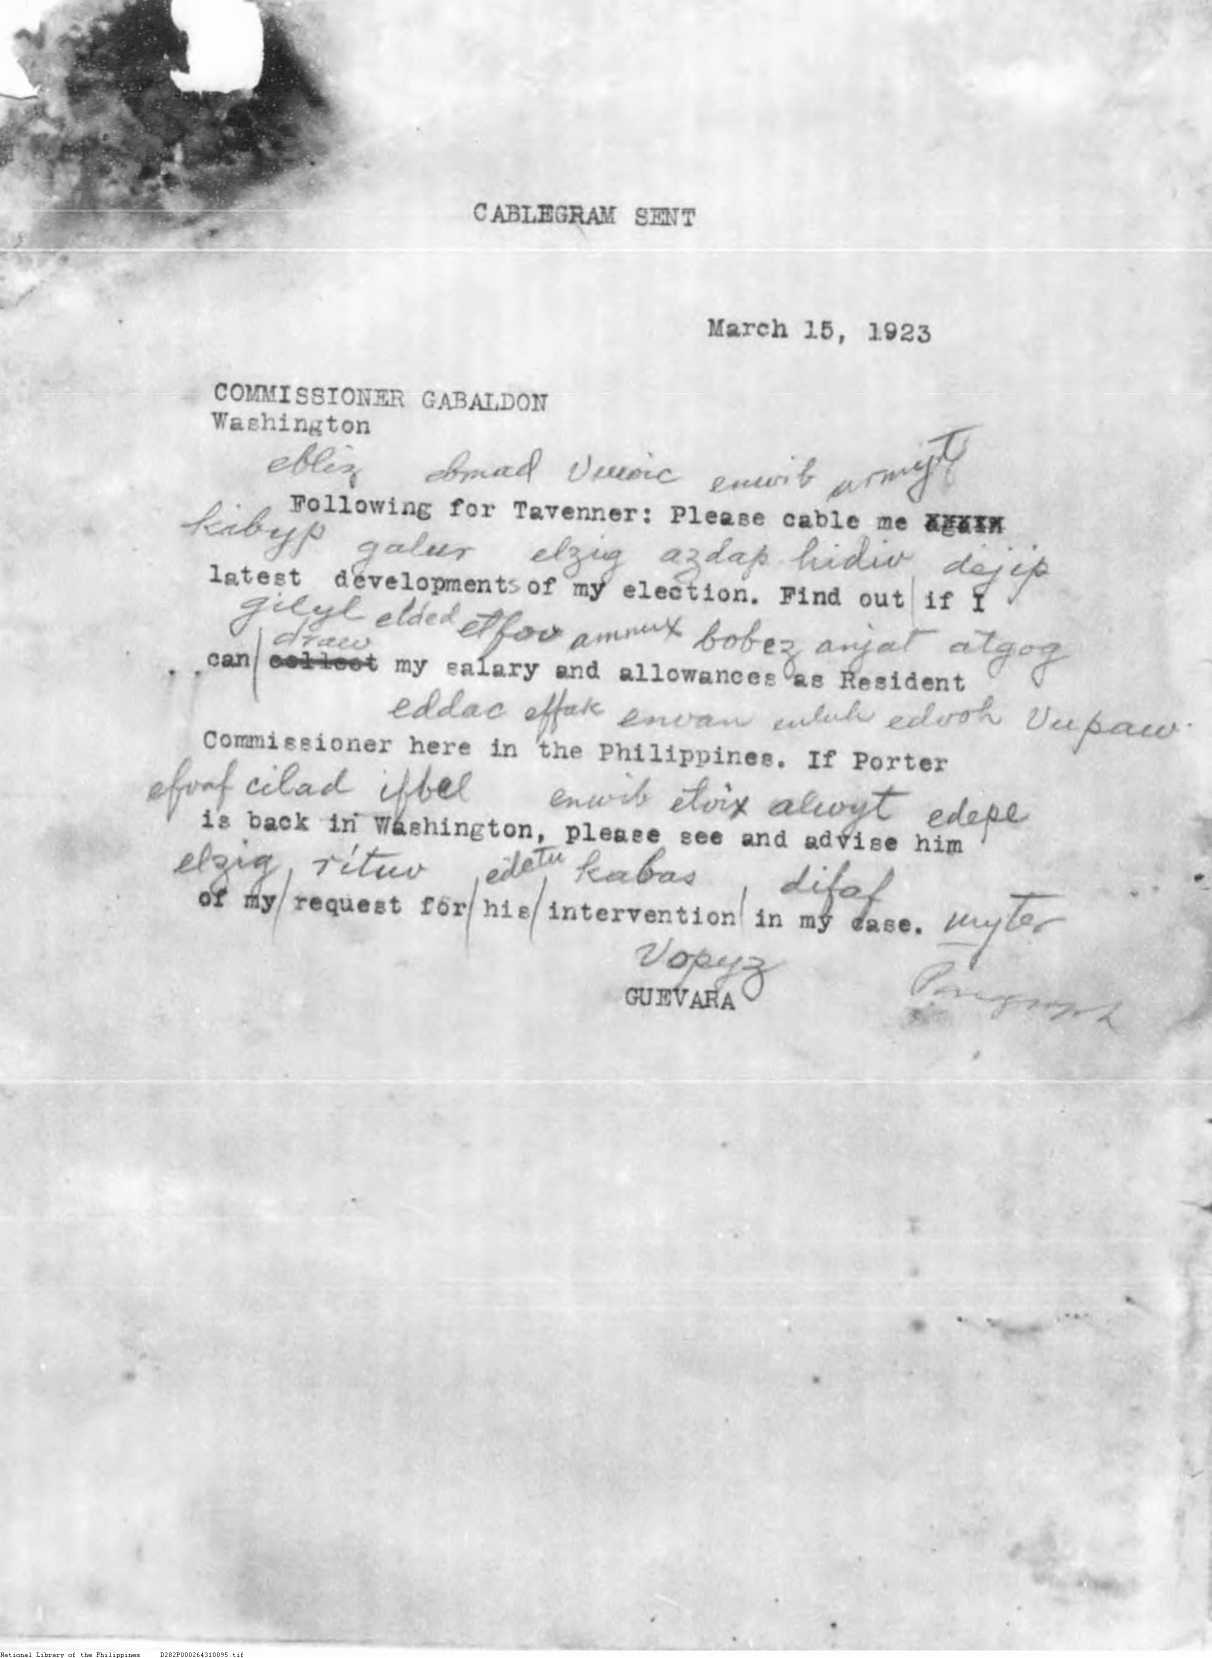 CABLEGRAM SENT
March 15, 1923
COMMISSIONER GABALDON
Washington
ebliz enwib
Following for Tavenner: Please cable me again
kibyp galur elzig azdap hidiv dejip
latest developments of my election. Find out if I
gilyl elded etfov bobez anjat atgog
draw
can collect my salary and allowances as Resident
eddac effak envan edvoh
Commissioner here in the Philippines. If Porter
efvaf cilad ifbel enwib etvix alwyt edepe
is back in Washington, please see and advise him
elzig rituv edetu kabas difaf
of my request for his intervention in my case. myter
Vopyz
GUEVARA
Paragraph
National Library of the Philippines D282P000264310095.tif